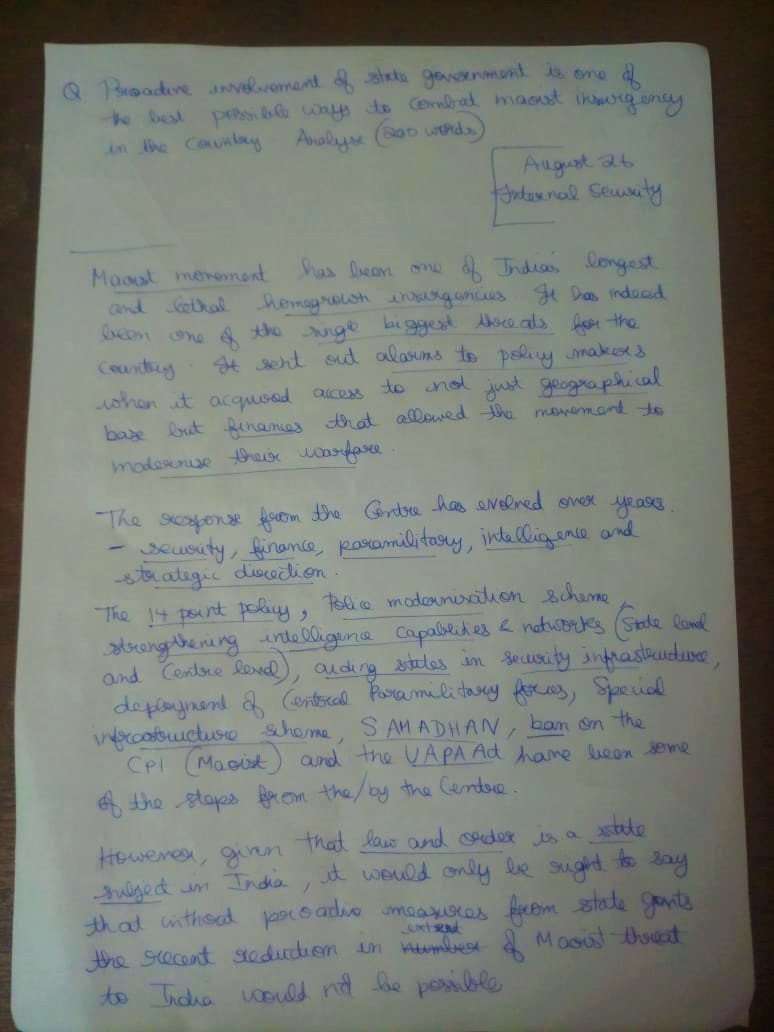 Q Proactive involvement of state government is one of
the best possible ways to combat maoist insurgency
in the country Analyse (200 words)
August 26
Internal Security
Maoist movement has been one of India's longest
and lethal homegrown insurgencies. It has indeed
been one of the single biggest threats for the
country. It sent out alarms to policy makers
when it acquired access to not just geographical
base but finances that allowed the movement to
modernise their warfare.
The response from the Centre has evolved over years.
- security, finance, paramilitary, intelligence and
strategic direction.
The 14 point policy, Police modernisation scheme,
strengthening intelligence capabilities & networks (State level
and Centre level), aiding states in security infrastructure,
deployment of Central Paramilitary forces, Special
infrastructure scheme, SAMADHAN, ban on the
CPI (Maoist) and the UAPA Act have been some
of the steps from the/by the Centre.
However, given that law and order is a state
subject in India, it would only be right to say
that without proactive measures from state govts
the recent reduction in extent of Maoist threat
to India would not be possible